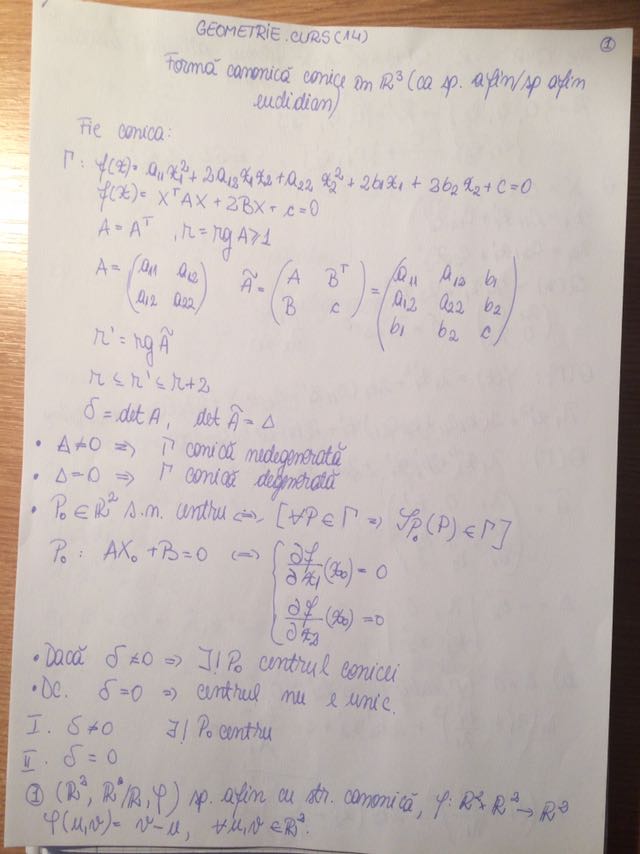 GEOMETRIE. CURS (14)
①
Formă canonică conice în R² (ca sp. afin/sp afin
euclidian)
Fie conica:
Γ: f(x) = a₁₁x₁² + 2a₁₂x₁x₂ + a₂₂x₂² + 2b₁x₁ + 2b₂x₂ + c = 0
f(x) = XᵀAX + 2BX + c = 0
A = Aᵀ, r = rg A ≥ 1
A = (a₁₁ a₁₂ / a₁₂ a₂₂) Ã = (A Bᵀ / B c) = (a₁₁ a₁₂ b₁ / a₁₂ a₂₂ b₂ / b₁ b₂ c)
r' = rg Ã
r ≤ r' ≤ r+2
δ = det A, det Ã = Δ
• Δ ≠ 0 => Γ conică nedegenerată
• Δ = 0 => Γ conică degenerată
• P₀ ∈ R² s.n. centru <=> [∀P ∈ Γ => 𝒮_P₀(P) ∈ Γ]
P₀: AX₀ + B = 0 <=> { ∂f/∂x₁ (x₀) = 0
∂f/∂x₂ (x₀) = 0
• Dacă δ ≠ 0 => ∃! P₀ centrul conicei
• Dc. δ = 0 => centrul nu e unic.
I. δ ≠ 0 ∃! P₀ centru
II. δ = 0
① (R², R²/R, φ) sp. afin cu str. canonică, φ: R² × R² → R²
φ(u,v) = v − u, ∀u,v ∈ R².